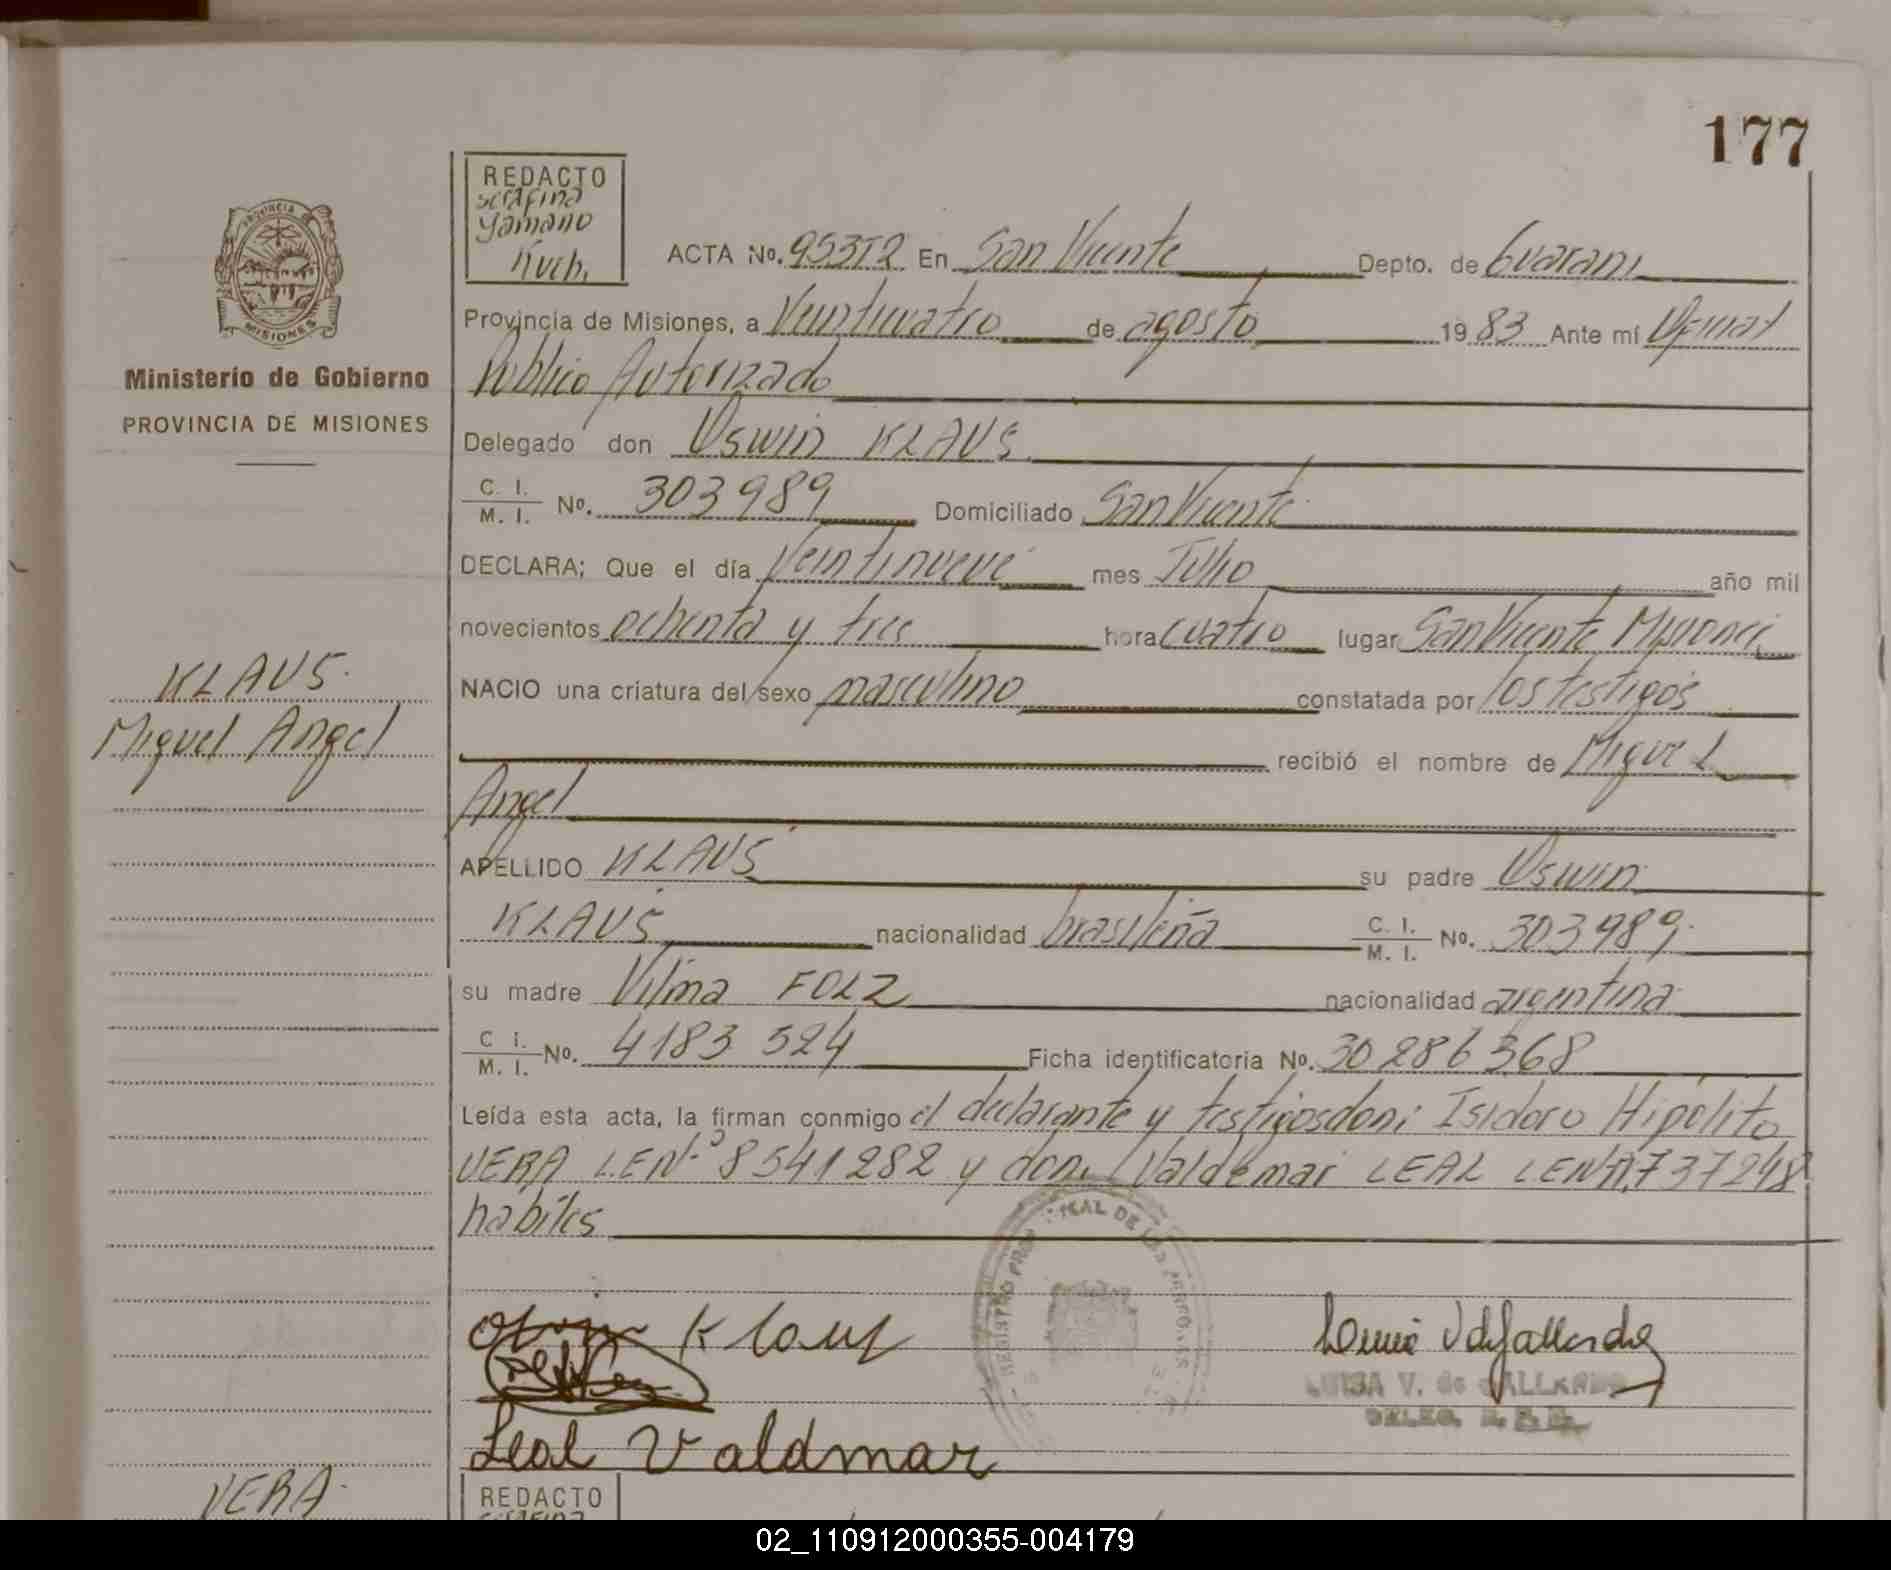 177
REDACTO
serafina
Yamano
Kuch.
PROVINCIA
MISIONES
Ministerio de Gobierno
PROVINCIA DE MISIONES
ACTA No. 95372 En San Vicente Depto. de Guarani
Provincia de Misiones, a Veinticuatro de agosto 1983 Ante mí
Publico Autorizado
Delegado don Oswin KLAUS
C. I.
M. I. No. 303989 Domiciliado San Vicente
DECLARA; Que el día Veintinueve mes Julio año mil
novecientos ochenta y tres hora cuatro lugar San Vicente Misiones
NACIO una criatura del sexo masculino constatada por los testigos
recibió el nombre de Miguel
Angel
KLAUS.
Miguel Angel
APELLIDO KLAUS su padre Oswin
KLAUS nacionalidad brasileña C. I.
M. I. No. 303989.
su madre Vilma FOLZ nacionalidad argentina
C. I.
M. I. No. 4183 524 Ficha identificatoria No. 30286368
Leída esta acta, la firman conmigo el declarante y testigos don: Isidoro Hipólito
VERA L.E.Nº 8541282 y don: Valdemar LEAL L.E.Nº 1.737248
habiles
Klaus
LUISA V. de GALLARDO
Leal Valdmar
VERA
REDACTO
serafina
02_110912000355-004179